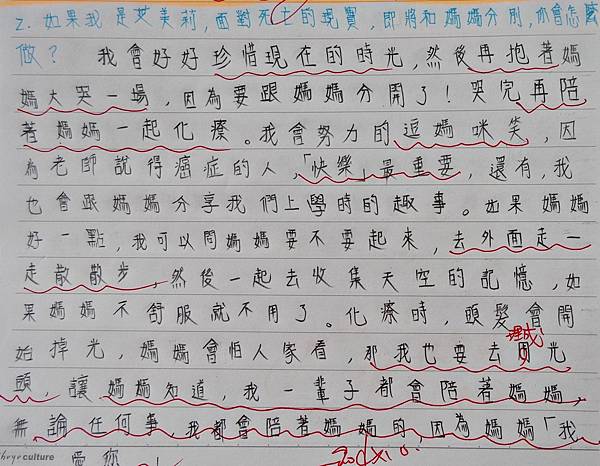 2. 如果我是艾美莉，面對死亡的現實，即將和媽媽分別，你會怎麼
做？ 我會好好珍惜現在的時光，然後再抱著媽
媽大哭一場，因為要跟媽媽分開了！哭完再陪
著媽媽一起化療。我會努力的逗媽咪笑，因
為老師說得癌症的人，「快樂」最重要，還有，我
也會跟媽媽分享我們上學時的趣事。如果媽媽
好一點，我可以問媽媽要不要起來，去外面走一
走散散步，然後一起去收集天空的記憶，如
果媽媽不舒服就不用了。化療時，頭髮會開
理成
始掉光，媽媽會怕人家看，那我也要去光
頭，讓媽媽知道，我一輩子都會陪著媽媽，
無論任何事，我都會陪著媽媽的，因為媽媽「我
愛您！
culture